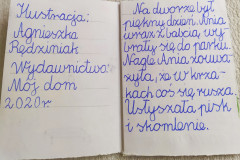 Ilustracja:
Agnieszka
Redziniak
Wydawnictwo:
Mój dom
2020r
Na dworze był
piękny dzień. Ania
wraz z babcią, wy-
brały się do parku.
Nagle Ania zauwa-
żyła, że w krza-
kach coś się rusza.
Usłyszała pisk
i skomlenie.